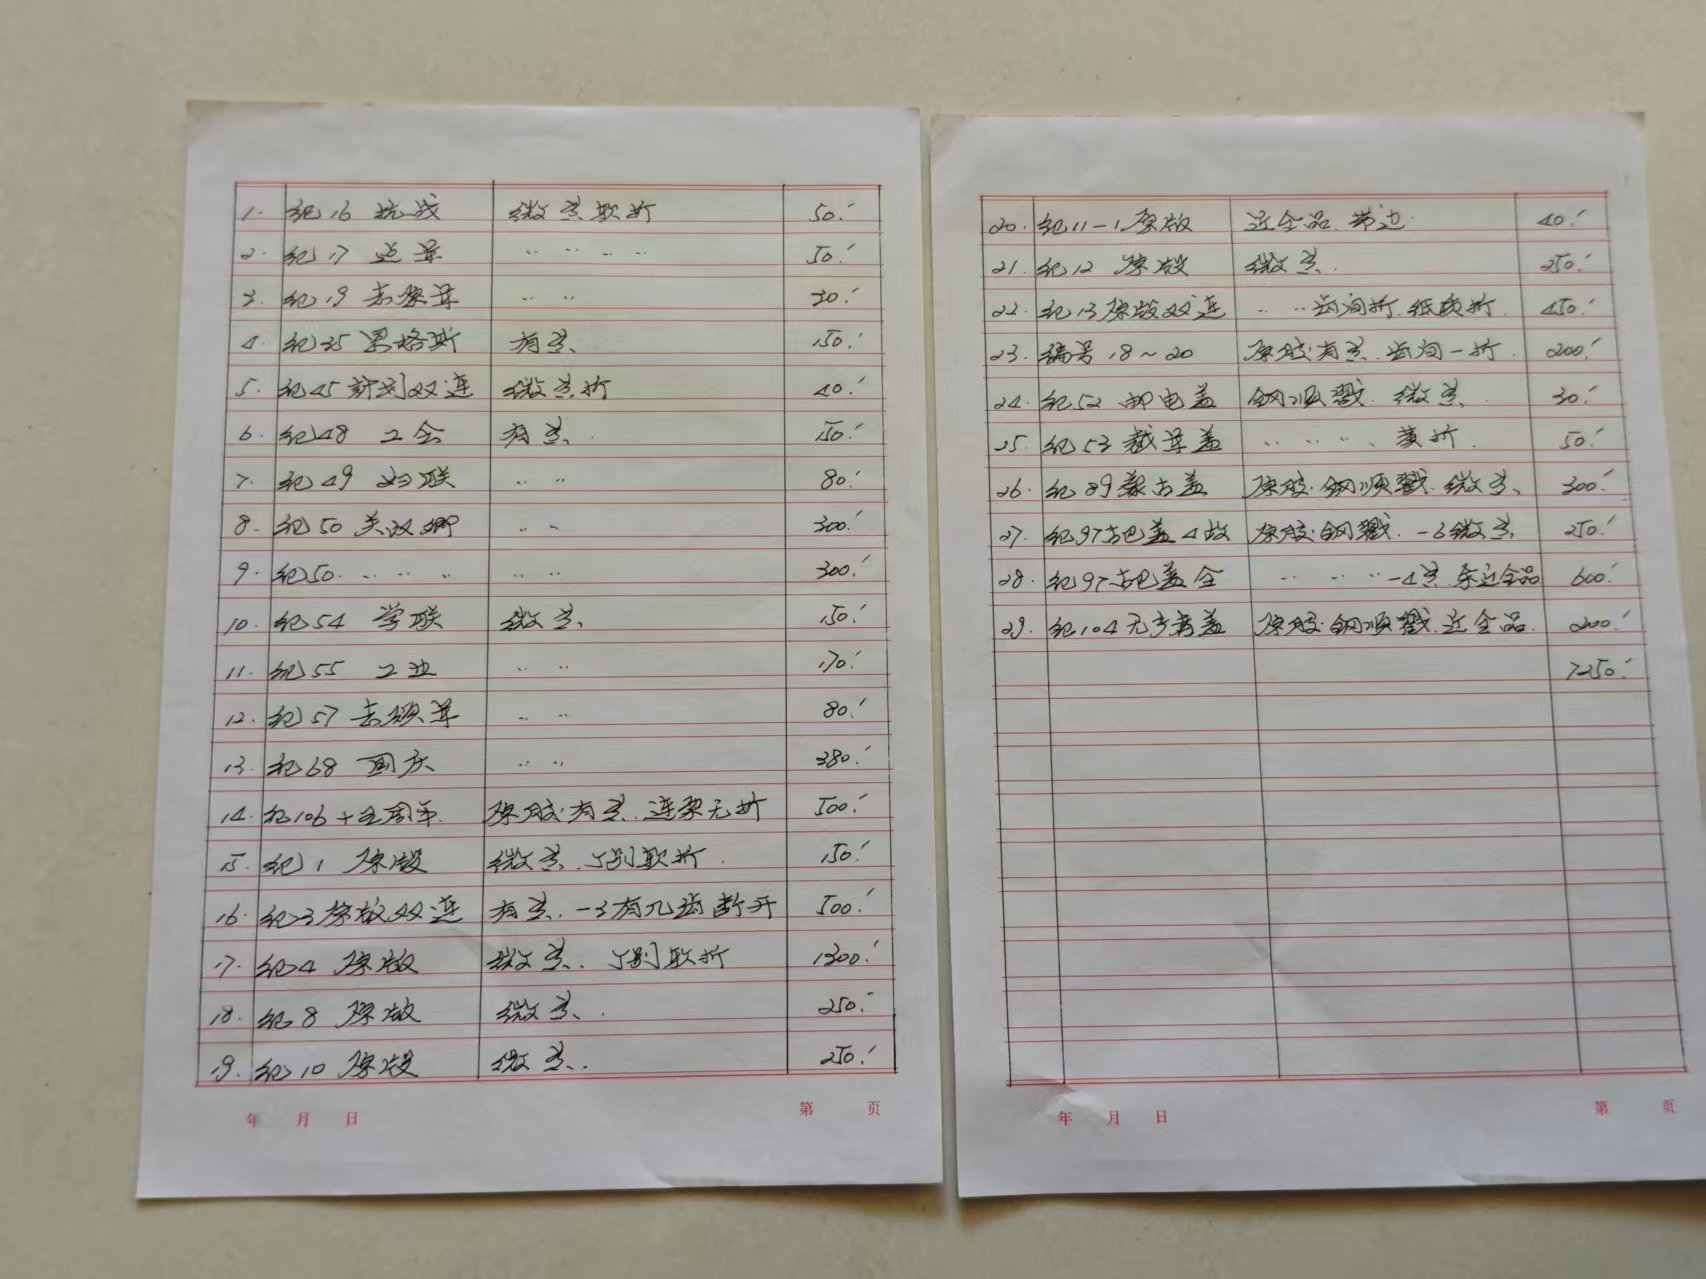 1. 纪16 抗战 微黄软折 50.
2. 纪17 〃 〃 〃 〃 50.
3. 纪19 〃 〃 30.
4. 纪35 恩格斯 有黄 150.
5. 纪45 计划双连 微黄折 40.
6. 纪48 工会 有黄. 150.
7. 纪49 妇联 〃 〃 80.
8. 纪50 关汉卿 〃 〃 300.
9. 纪50. 〃 〃 〃 〃 〃 300.
10. 纪54 学联 微黄 150.
11. 纪55 工业 〃 〃 170.
12. 纪57 〃 〃 80.
13. 纪68 国庆 〃 〃 380.
14. 纪106 十五周年. 原胶.有黄.连票无折 500.
15. 纪1 原版 微黄.个别软折. 150.
16. 纪3原版双连 有黄.-3有几齿断开 500.
17. 纪4 原版 微黄.个别软折 1300.
18. 纪8 原版 微黄. 250.
19. 纪10 原版 微黄. 250.
年 月 日 第 页
20. 纪11-1原版 近全品.带边 40.
21. 纪12 原版 微黄. 250.
22. 纪13原版双连 〃 〃 齿间折.纸质折. 450.
23. 编号18~20 原胶.有黄.齿间一折. 200.
24. 纪52 邮电盖 钢顺戳.微黄. 30.
25. 纪53 裁军盖 〃 〃 〃 〃 黄折. 50.
26. 纪89蒙古盖 原胶.钢顺戳.微黄 300.
27. 纪97古巴盖4枚 原胶.钢戳.-3微黄 250.
28. 纪97古巴盖全 〃 〃 〃 -4黄.余近全品 600.
29. 纪104无产者盖 原胶.钢顺戳.近全品. 200.
7250.
年 月 日 第 页